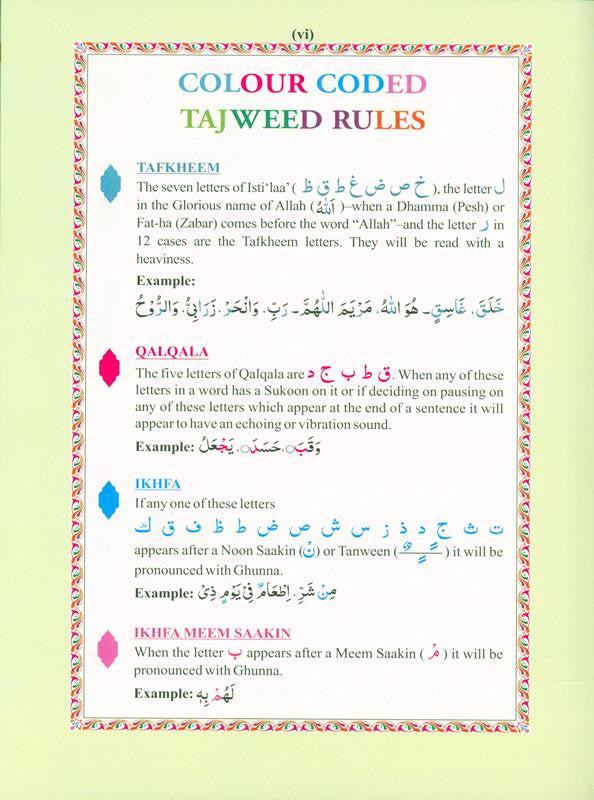 (vi)
COLOUR CODED
TAJWEED RULES
TAFKHEEM
The seven letters of Isti‘laa’ ( خ ص ض غ ط ق ظ ), the letter ل
in the Glorious name of Allah ( اَللهُ )–when a Dhamma (Pesh) or
Fat-ha (Zabar) comes before the word “Allah”–and the letter ر in
12 cases are the Tafkheem letters. They will be read with a
heaviness.
Example:
خَلَقَ، غَاسِقٍ۔ هُوَ اللهُ، مَرْيَمَ اللّٰهُمَّ۔ رَبِّ، وَانْحَرْ، زَرَابِيُّ، وَالرُّوْحُ
QALQALA
The five letters of Qalqala are ق ط ب ج د. When any of these
letters in a word has a Sukoon on it or if deciding on pausing on
any of these letters which appear at the end of a sentence it will
appear to have an echoing or vibration sound.
Example: وَقَبَ○، حَسَدَ○، يَجْعَلُ
IKHFA
If any one of these letters
ت ث ج د ذ ز س ش ص ض ط ظ ف ق ك
appears after a Noon Saakin (نْ) or Tanween ( ـًـٍـٌ ) it will be
pronounced with Ghunna.
Example: مِنْ شَرِّ، اِطْعَامٌ فِيْ يَوْمٍ ذِيْ
IKHFA MEEM SAAKIN
When the letter ب appears after a Meem Saakin ( مْ ) it will be
pronounced with Ghunna.
Example: لَهُمْ بِهٖ